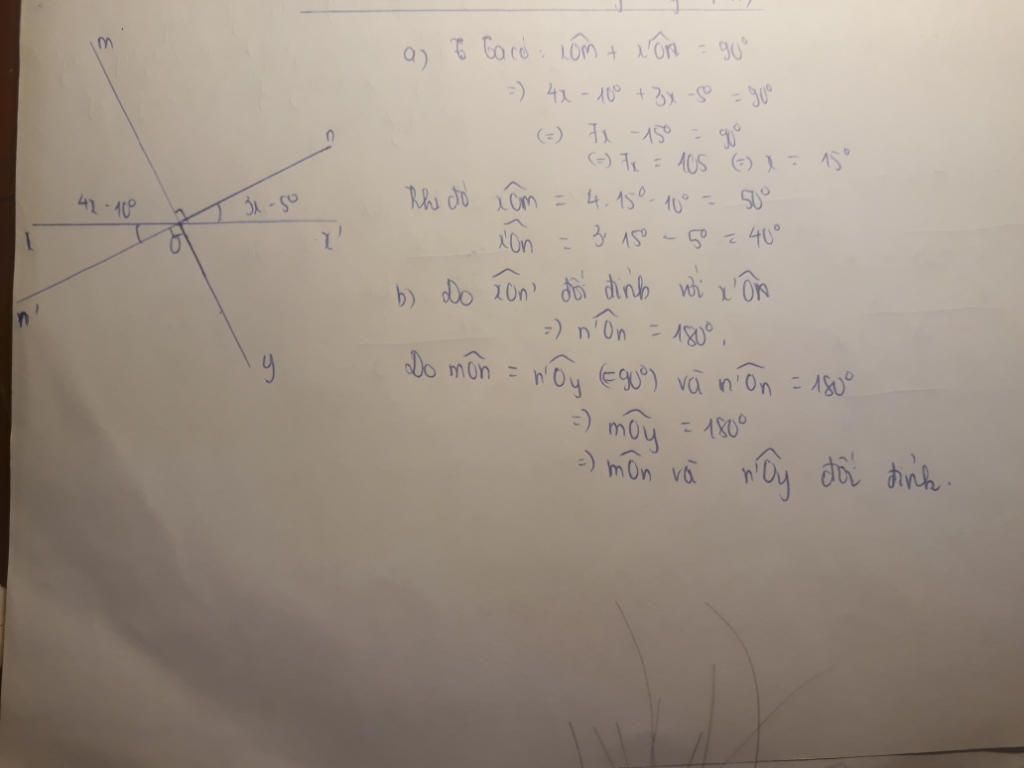 m
n
4x - 10°
3x - 5°
x
O
x'
n'
y
a) Ta có : xÔm + x'Ôn = 90°
=) 4x - 10° + 3x - 5° = 90°
(=) 7x - 15° = 90°
(=) 7x = 105 (=) x = 15°
Khi đó xÔm = 4.15° - 10° = 50°
x'Ôn = 3 15° - 5° = 40°
b) Do xÔn' đối đỉnh với x'Ôn
=) n'Ôn = 180°.
Do mÔn = n'Ôy (=90°) và n'Ôn = 180°
=) mÔy = 180°
=) mÔn và n'Ôy đối đỉnh.